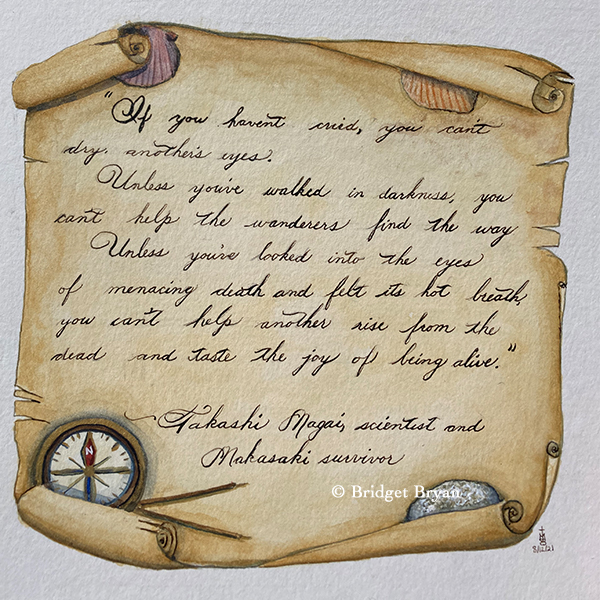 "If you havent cried, you can't
dry. another's eyes.
Unless you've walked in darkness, you
can't help the wanderers find the way
Unless you've looked into the eyes
of menacing death and felt its hot breath,
you can't help another rise from the
dead and taste the joy of being alive."
Takashi Magai, scientist and
Makasaki survivor
N
© Bridget Bryan
8/12/21